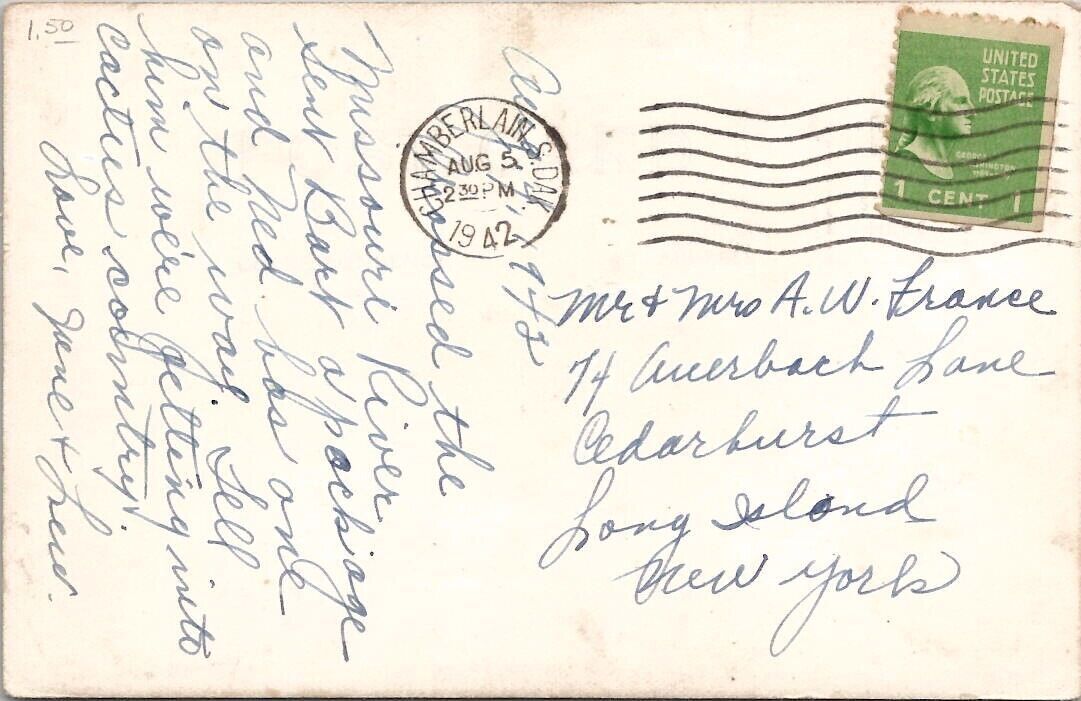 1.50
Aug 5, 1942
Crossed the
Missouri River
Sent Bart a package
and Ned has one
on the way. Tell
him we're getting into
cactus country.
Love, June & Lew.
CHAMBERLAIN, S. DAK.
AUG 5
2 30 PM
1942
UNITED
STATES
POSTAGE
GEORGE
WASHINGTON
1 CENT 1
Mr & Mrs A. W. France
74 Auerbach Lane
Cedarhurst
Long Island
New York